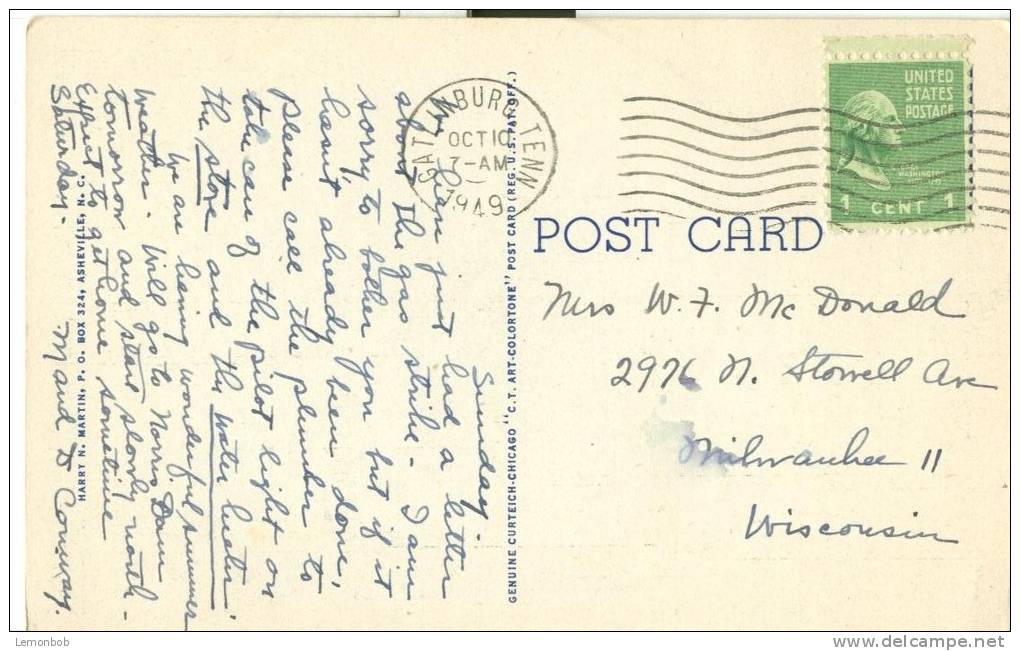 GATLINBURG, TENN
OCT 10
7-AM
1949
UNITED
STATES
POSTAGE
WASHINGTON
1 CENT 1
POST CARD
Mrs W. F. Mc Donald
2976 N. Stowell Ave
Milwaukee 11
Wisconsin
GENUINE CURTEICH-CHICAGO "C.T. ART-COLORTONE" POST CARD (REG. U.S. PAT. OFF.)
Sunday -
just had a letter
about the gas strike - I am
sorry to bother you but if it
hasn't already been done,
please call the plumber to
take care of the pilot light on
the store and the water heater
We are having wonderful summer
weather. Will go to Norris Dam
tomorrow and start slowly north-
Expect to get home sometime
Saturday. Maud D Conway.
HARRY N. MARTIN, P. O. BOX 324, ASHEVILLE, N. C.
Lemonbob
www.delcampe.net